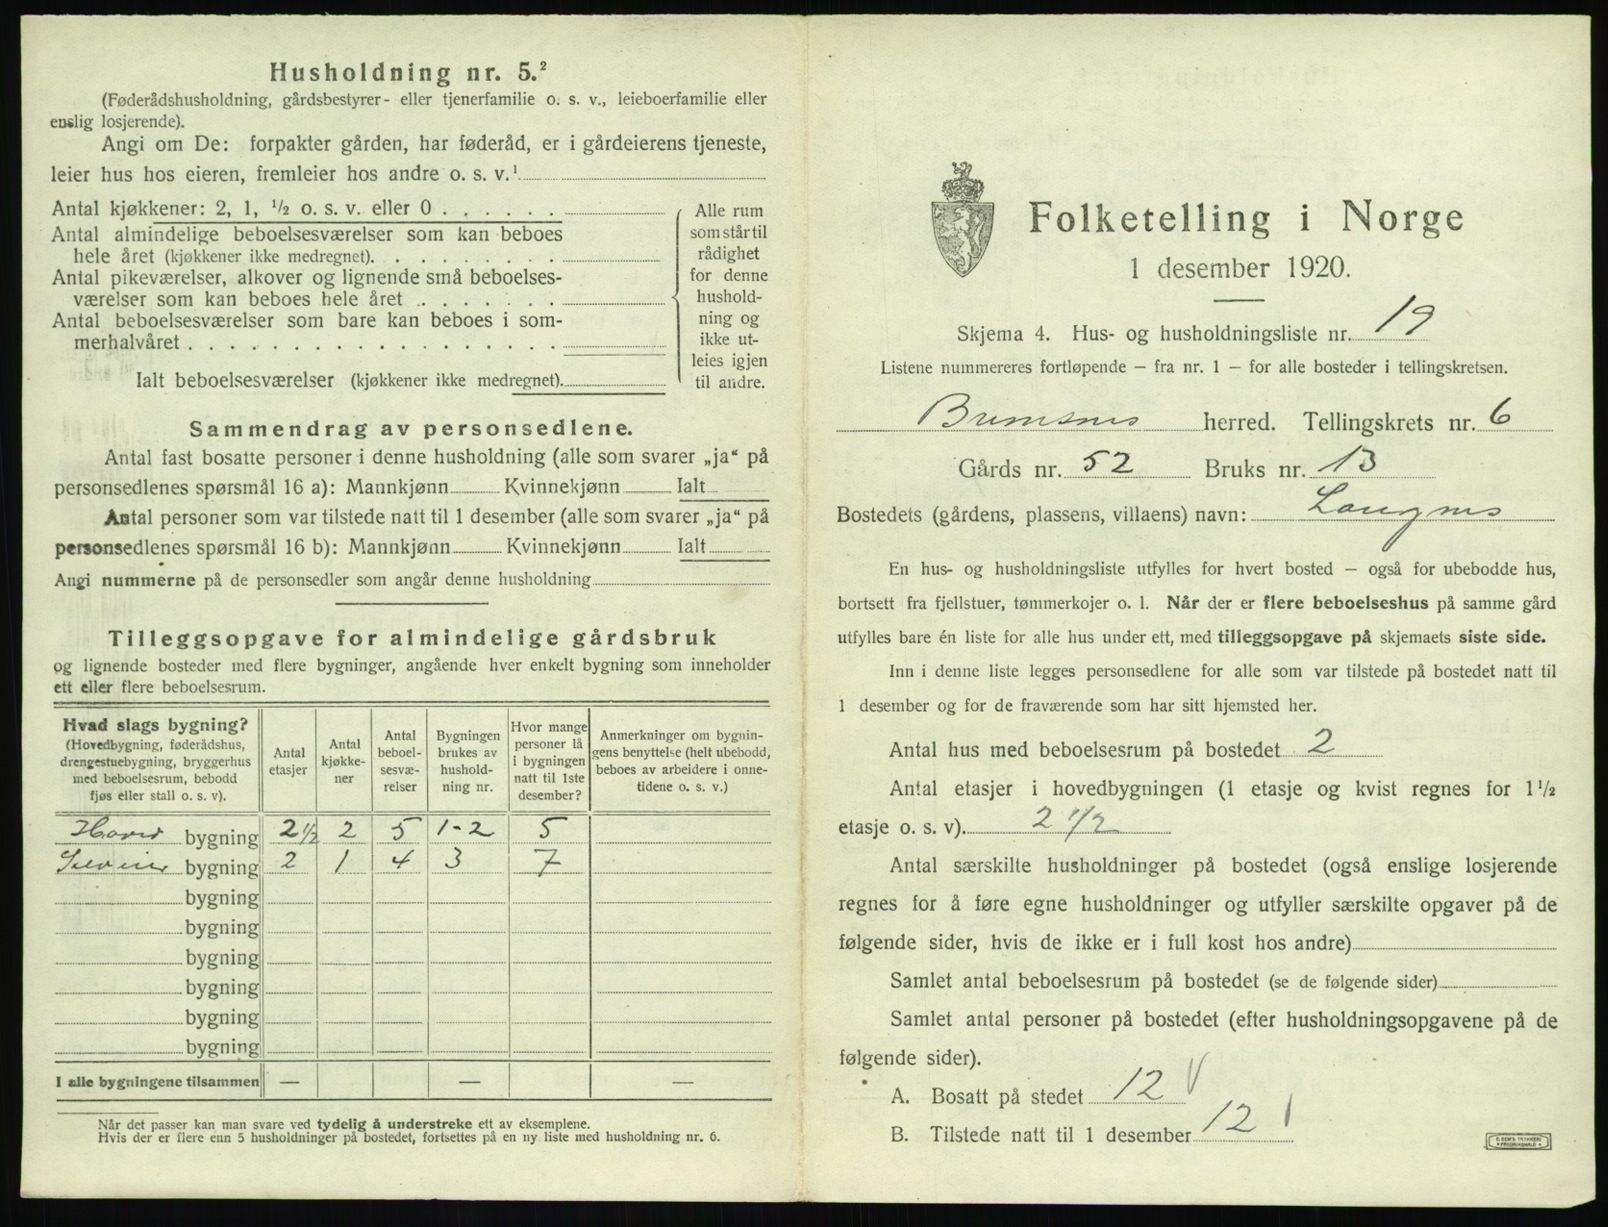 Husholdning nr. 5.²
(Føderådshusholdning, gårdsbestyrer- eller tjenerfamilie o. s. v., leieboerfamilie eller
enslig losjerende).
Angi om De: forpakter gården, har føderåd, er i gårdeierens tjeneste,
leier hus hos eieren, fremleier hos andre o. s. v.¹
Antal kjøkkener: 2, 1, ½ o. s. v. eller 0 . . . . . .
Antal almindelige beboelsesværelser som kan beboes
hele året (kjøkkener ikke medregnet). . . . . . . . .
Antal pikeværelser, alkover og lignende små beboelses-
værelser som kan beboes hele året . . . . . . .
Antal beboelsesværelser som bare kan beboes i som-
merhalvåret . . . . . . . . . . . . . . . . . .
Ialt beboelsesværelser (kjøkkener ikke medregnet).
Alle rum
som står til
rådighet
for denne
hushold-
ning og
ikke ut-
leies igjen
til andre.
Sammendrag av personsedlene.
Antal fast bosatte personer i denne husholdning (alle som svarer „ja“ på
personsedlenes spørsmål 16 a): Mannkjønn Kvinnekjønn Ialt
Antal personer som var tilstede natt til 1 desember (alle som svarer „ja“ på
personsedlenes spørsmål 16 b): Mannkjønn Kvinnekjønn Ialt
Angi nummerne på de personsedler som angår denne husholdning
Tilleggsopgave for almindelige gårdsbruk
og lignende bosteder med flere bygninger, angående hver enkelt bygning som inneholder
ett eller flere beboelsesrum.
Hvad slags bygning?
(Hovedbygning, føderådshus,
drengestuebygning, bryggerhus
med beboelsesrum, bebodd
fjøs eller stall o. s. v).
Antal
etasjer
Antal
kjøkke-
ner
Antal
beboel-
sesvæ-
relser
Bygningen
brukes av
hushold-
ning nr.
Hvor mange
personer lå
i bygningen
natt til 1ste
desember?
Anmerkninger om bygnin-
gens benyttelse (helt ubebodd,
beboes av arbeidere i onne-
tidene o. s. v.)
Hoved bygning 2 ½ 2 5 1-2 5
bygning 2 1 4 3 7
bygning
bygning
bygning
bygning
bygning
bygning
I alle bygningene tilsammen — — —
Når det passer kan man svare ved tydelig å understreke ett av eksemplene.
Hvis der er flere enn 5 husholdninger på bostedet, fortsettes på en ny liste med husholdning nr. 6.
Folketelling i Norge
1 desember 1920.
Skjema 4. Hus- og husholdningsliste nr. 19
Listene nummereres fortløpende – fra nr. 1 – for alle bosteder i tellingskretsen.
Bremsnes herred. Tellingskrets nr. 6
Gårds nr. 52 Bruks nr. 13
Bostedets (gårdens, plassens, villaens) navn: Langnes
En hus- og husholdningsliste utfylles for hvert bosted – også for ubebodde hus,
bortsett fra fjellstuer, tømmerkojer o. l. Når der er flere beboelseshus på samme gård
utfylles bare én liste for alle hus under ett, med tilleggsopgave på skjemaets siste side.
Inn i denne liste legges personsedlene for alle som var tilstede på bostedet natt til
1 desember og for de fraværende som har sitt hjemsted her.
Antal hus med beboelsesrum på bostedet 2
Antal etasjer i hovedbygningen (1 etasje og kvist regnes for 1½
etasje o. s. v). 2 1/2
Antal særskilte husholdninger på bostedet (også enslige losjerende
regnes for å føre egne husholdninger og utfyller særskilte opgaver på de
følgende sider, hvis de ikke er i full kost hos andre)
Samlet antal beboelsesrum på bostedet (se de følgende sider)
Samlet antal personer på bostedet (efter husholdningsopgavene på de
følgende sider).
A. Bosatt på stedet 12
B. Tilstede natt til 1 desember 12